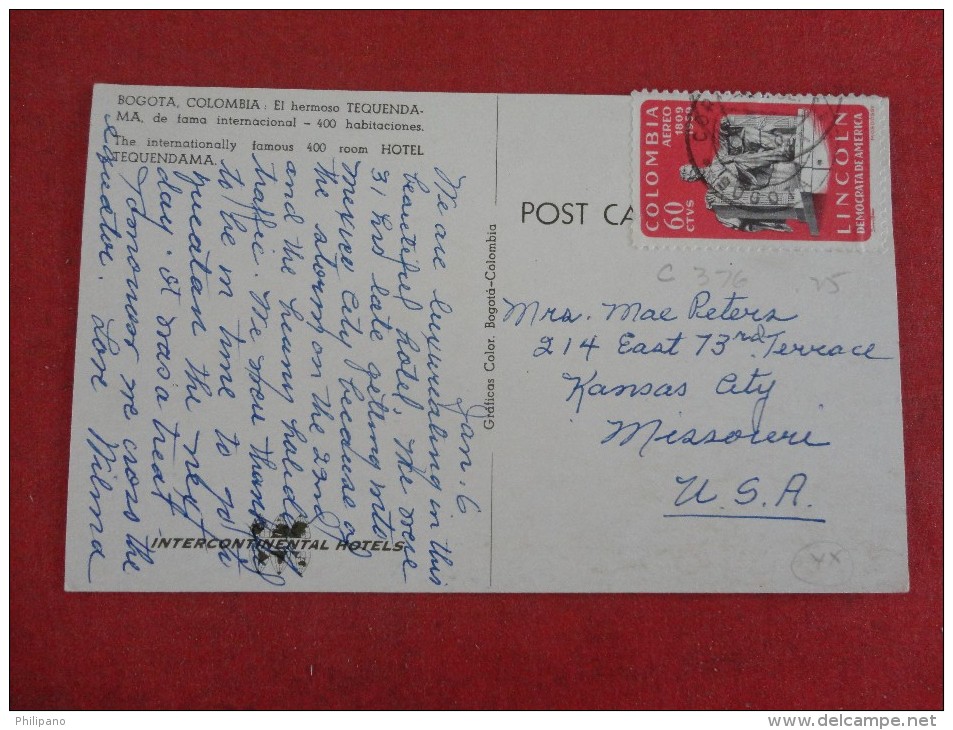 BOGOTA, COLOMBIA: El hermoso TEQUENDA-
MA, de fama internacional - 400 habitaciones.
The internationally famous 400 room HOTEL
TEQUENDAMA.
Jan. 6
We are luxuriating in this
beautiful hotel. We were
31 hrs late getting into
Mexico City because of
the storm on the 22nd
and the heavy holiday
traffic. We were thankful
to be in time to go to
Yucatan the next
day. It was a treat
Tomorrow we cross the
equator. Love Wilma
INTERCONTINENTAL HOTELS
Gráficas Color. Bogotá-Colombia
POST CA
COLOMBIA
AEREO 1809
1959
60
CTVS
LINCOLN
DEMOCRATA DE AMERICA
BOGO
C 376 25
Mrs. Mae Peters
214 East 73rd Terrace
Kansas City
Missouri
U.S.A.
XX
Philipano
www.delcampe.net